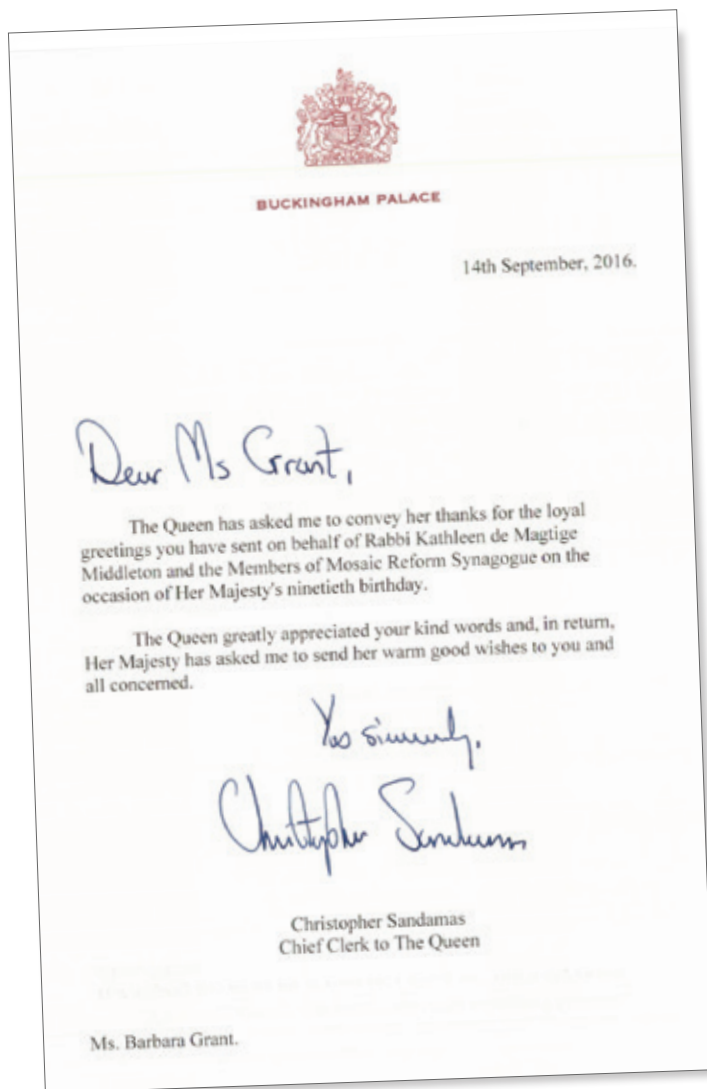 BUCKINGHAM PALACE
14th September, 2016.
Dear Ms Grant,
The Queen has asked me to convey her thanks for the loyal
greetings you have sent on behalf of Rabbi Kathleen de Magtige
Middleton and the Members of Mosaic Reform Synagogue on the
occasion of Her Majesty's ninetieth birthday.
The Queen greatly appreciated your kind words and, in return,
Her Majesty has asked me to send her warm good wishes to you and
all concerned.
Yrs sincerely,
Christopher Sandamas
Christopher Sandamas
Chief Clerk to The Queen
Ms. Barbara Grant.